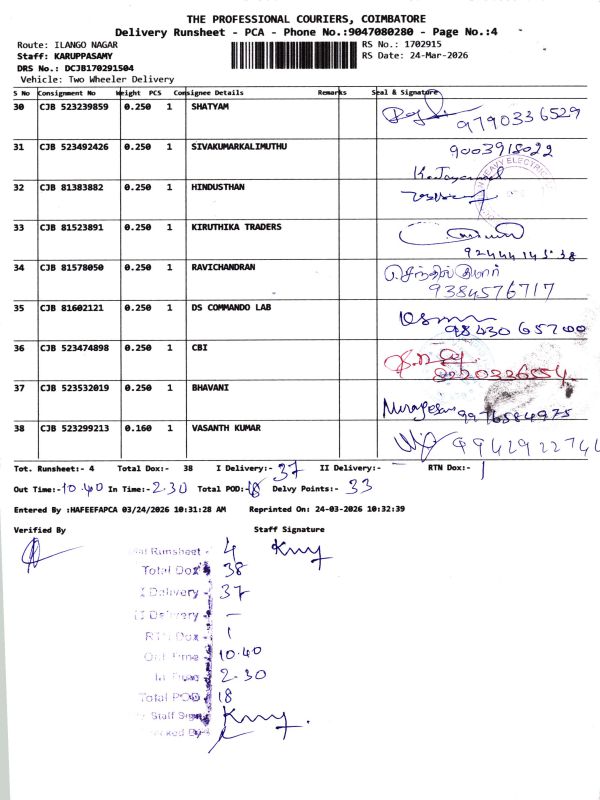 THE PROFESSIONAL COURIERS, COIMBATORE
Delivery Runsheet - PCA - Phone No.:9047080280 - Page No.:4
Route: ILANGO NAGAR RS No.: 1702915
Staff: KARUPPASAMY RS Date: 24-Mar-2026
DRS No.: DCJB170291504
Vehicle: Two Wheeler Delivery
S No Consignment No Weight PCS Consignee Details Remarks Seal & Signature
30 CJB 523239859 0.250 1 SHATYAM 9790336529
31 CJB 523492426 0.250 1 SIVAKUMARKALIMUTHU 9003915022
32 CJB 81383882 0.250 1 HINDUSTHAN
33 CJB 81523891 0.250 1 KIRUTHIKA TRADERS 92444 145 38
34 CJB 81578050 0.250 1 RAVICHANDRAN செந்தில்குமார் 9384576717
35 CJB 81602121 0.250 1 DS COMMANDO LAB 98430 65700
36 CJB 523474898 0.250 1 CBI 8220336554
37 CJB 523532019 0.250 1 BHAVANI Murugesan 9976584975
38 CJB 523299213 0.160 1 VASANTH KUMAR
Tot. Runsheet:- 4 Total Dox:- 38 I Delivery:- 37 II Delivery:- – RTN Dox:- 1
Out Time:- 10.40 In Time:- 2.30 Total POD:- 18 Delvy Points:- 33
Entered By :HAFEEFAPCA 03/24/2026 10:31:28 AM Reprinted On: 24-03-2026 10:32:39
Verified By Staff Signature
Runsheet - 4
Total Dox - 38
I Delivery - 37
II Delivery - –
RTN Dox - 1
Out Time 10.40
In Time 2.30
Total POD 18
Staff Sign